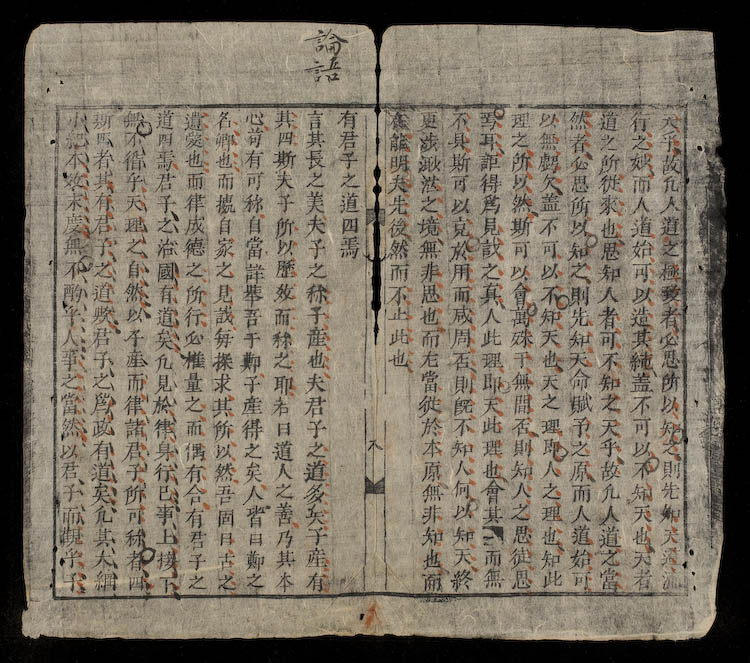 論語
天乎故凡人道之極致者必思所以知之則先知天道流
行之妙而人道始可以造其純蓋不可以不知天也天者
道之所從來也思知人者可不知之天乎故凡人道之當
然者必思所以知之則先知天命賦予之原而人道始可
以無虧欠蓋不可以不知天也天之理即人之理也知此
理之所以然斯可以會萬殊于無間否則知人之思徒思
焉耳詎得爲見哉之真人此理即天此理也會其一而無
不具斯可以見於用而咸周否則旣不知人何以知天終
更涉漱溪之境無非思也而尤當從於本原無非知也而
在能明夫先後然而不止此也
有君子之道四焉
言其長之美夫子之稱子產也夫君子之道多矣子產有
其四斯夫子所以歷敘而稱之耶若曰道人之善乃其本
心苟有可稱自當詳舉吾于鄭子產得之矣人皆曰鄭之
名卿也而據自家之見哉每探求其所以然吾固曰古之
遺愛也而律成德之所行必權量之而偶有合有君子之
道四焉君子之治國有道矣凡見於律身行己事上接下
無不得乎天理之自然以子產而律諸君子所可稱者四
斯四者其有君子之道歟君子之爲政有道矣凡其大綱
小紀本效末度無不酌乎人事之當然以君子而觀乎子
八